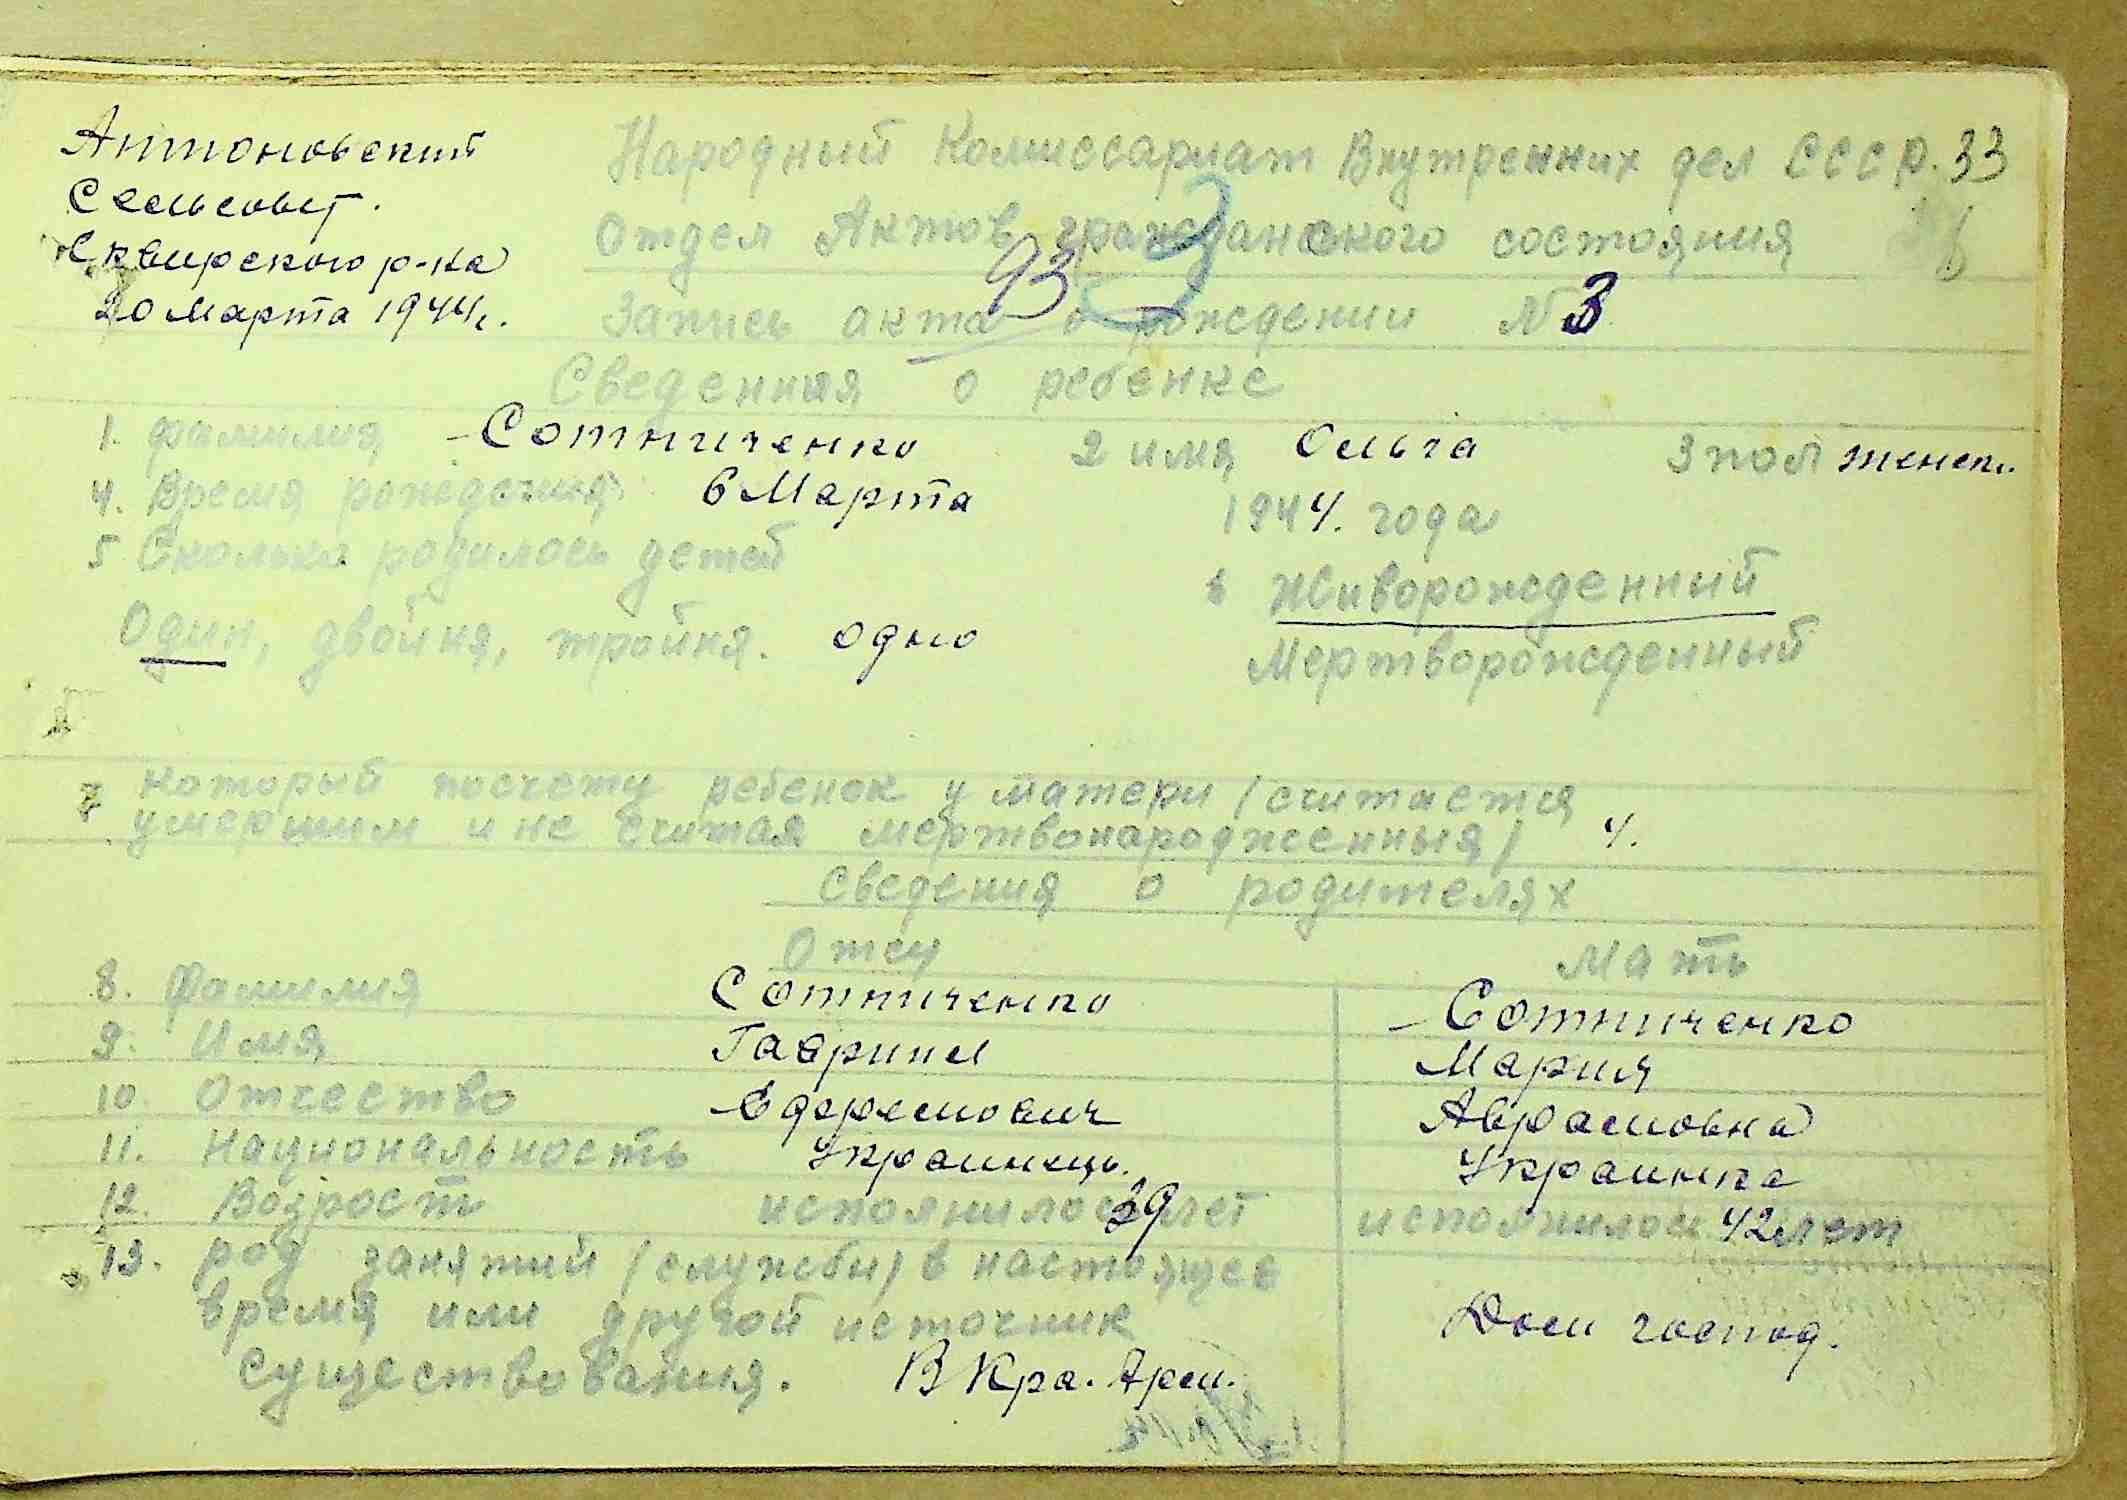 Антоновский
Сельсовет.
Сквирского р-на
20 Марта 1944 г.
Народный Комиссариат Внутренних дел СССР. 33
Отдел Актов гражданского состояния
93
Запись акта о рождении № 3
Сведенния о ребенке
1. фамилия – Сотниченко 2 имя Ольга 3 пол женск.
4. Время рождения 6 Марта 1944. года
5 Сколько родилось детей
6 Живорожденный
Один, двойня, тройня. одно
Мертворожденный
7 который посчету ребенок у матери /считается
умершим и не считая мертвонародженныя/ 4.
Сведения о родителях
Отец Мать
8. Фамилия Сотниченко – Сотниченко
9. Имя Гавриил Мария
10. Отчество Ефремович Аврамовна
11. Национальность Украинець. Украинка
12. Возрост исполнилось 39 лет исполнилось 42 лет
13. род занятий /службы/ в настоящее
время или другой источник
существования. В Кра. Арм. Дом господ.